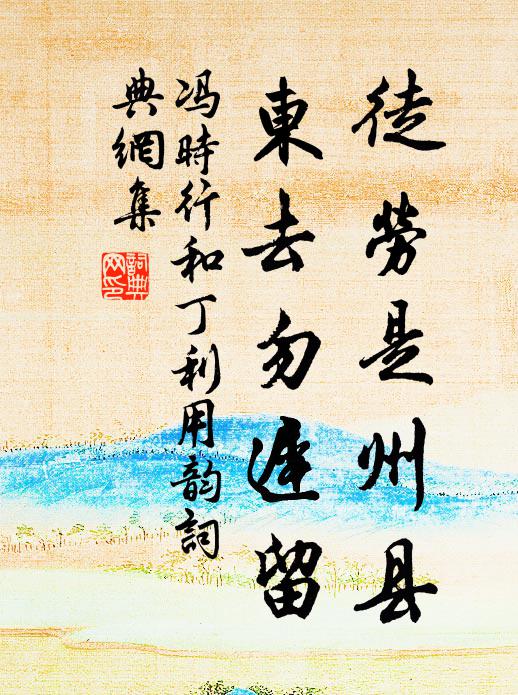 徒勞是州县
東去勿遲留
冯時行和丁利用韵詞
典網集
詞典
网印